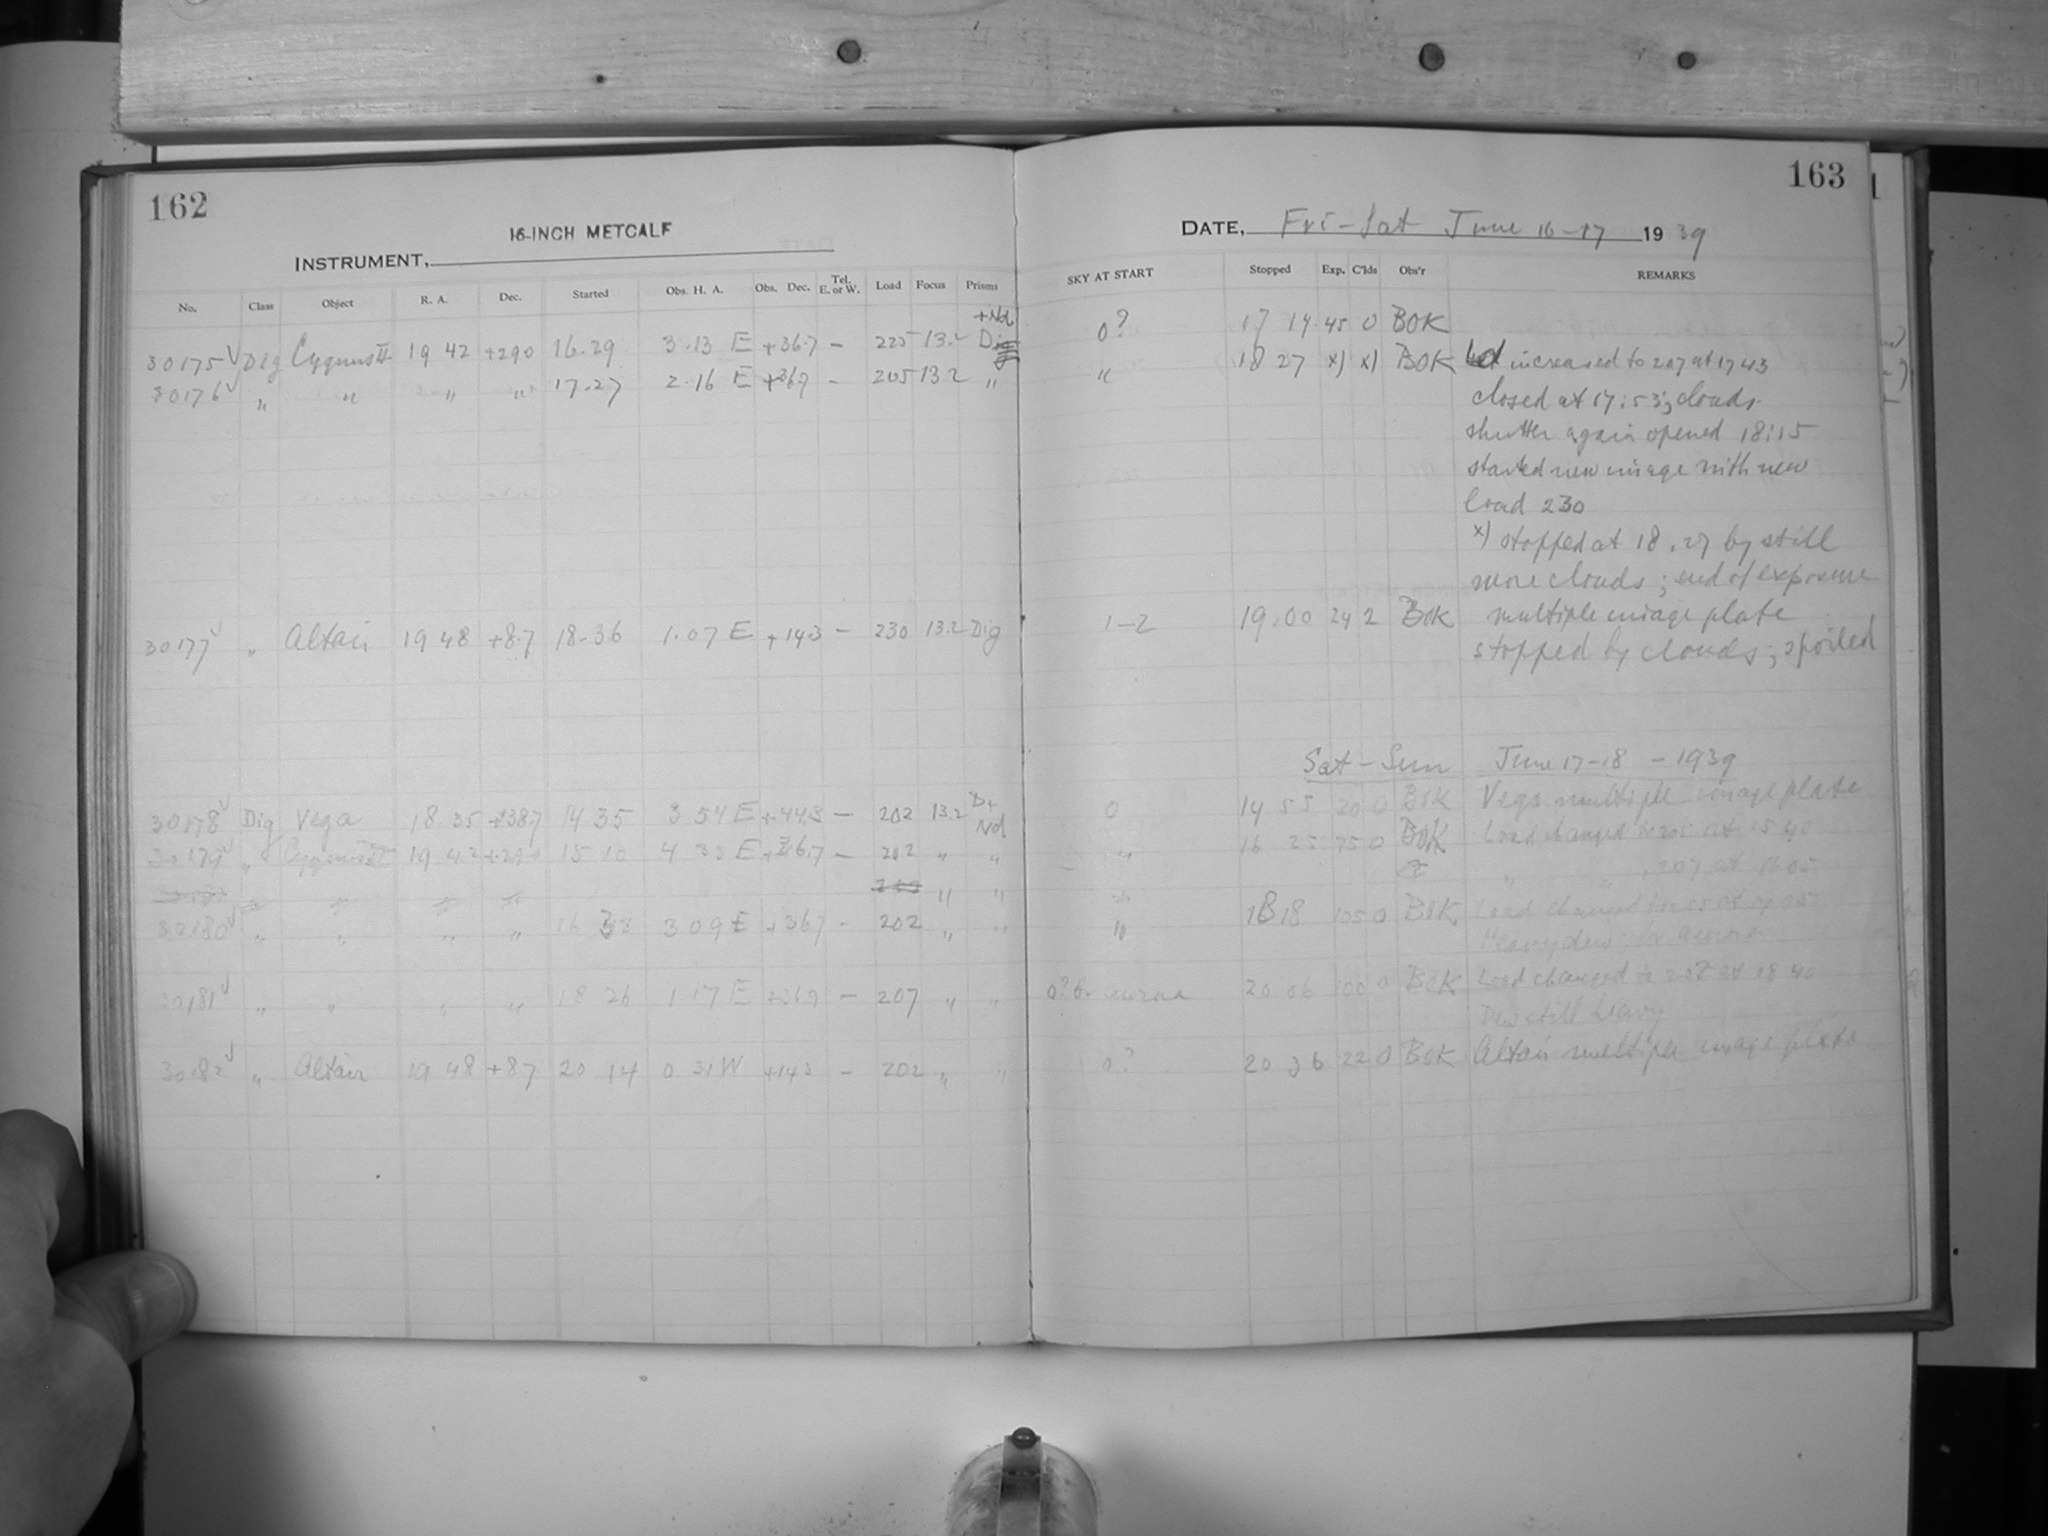 162
163
16-INCH METCALF
INSTRUMENT,
DATE, Fri-Sat June 16-17 1939
No. Class Object R. A. Dec. Started Obs. H. A. Obs. Dec. Tel. E. or W. Load Focus Prisms SKY AT START Stopped Exp. C'lds Obs'r REMARKS
+Nd
30175 √ Dig Cygnus II 19 42 +290 16.29 3.13 E +36.7 – 225 13.2 0? 17 14 45 0 BOK
30176 √ " " " " 17.27 2.16 E +367 – 205 13 2 " " 18 27 x) x) BOK increased to 207 at 17 43
closed at 17:53; clouds
shutter again opened 18:15
started new image with new
load 230
x) stopped at 18.27 by still
more clouds; end of exposure
multiple image plate
30177 √ " Altair 19 48 +8.7 18-36 1.07 E +14.3 – 230 13.2 Dig 1-2 19.00 24 2 BOK
stopped by clouds; spoiled
Sat-Sun June 17-18 - 1939
30178 √ Dig Vega 18 35 +387 14 35 3 54 E +44.3 – 202 13.2 D+ Nd 0 14 55 20 0 BOK Vega multiple image plate
30179 √ " Cygnus II 19 42 +290 15 10 4 33 E +36.7 – 202 " " " 16 25 75 0 BOK Load changed to 205 at 15 40
" 207 at 16 05
30180 √ " " " " 16 33 3 09 E +367 – 202 " " " 18 18 105 0 BOK Load changed to 205 at
Heavy dew; aurora
30181 √ " " " " 18 26 1.17 E – 207 " " 0? aurora 20 06 100 0 BOK Load changed to 202 at 18 40
Dew still heavy
30182 √ " Altair 19 48 +87 20 14 0 31 W +143 – 202 " " 0? 20 36 22 0 BOK Altair multiple image plate